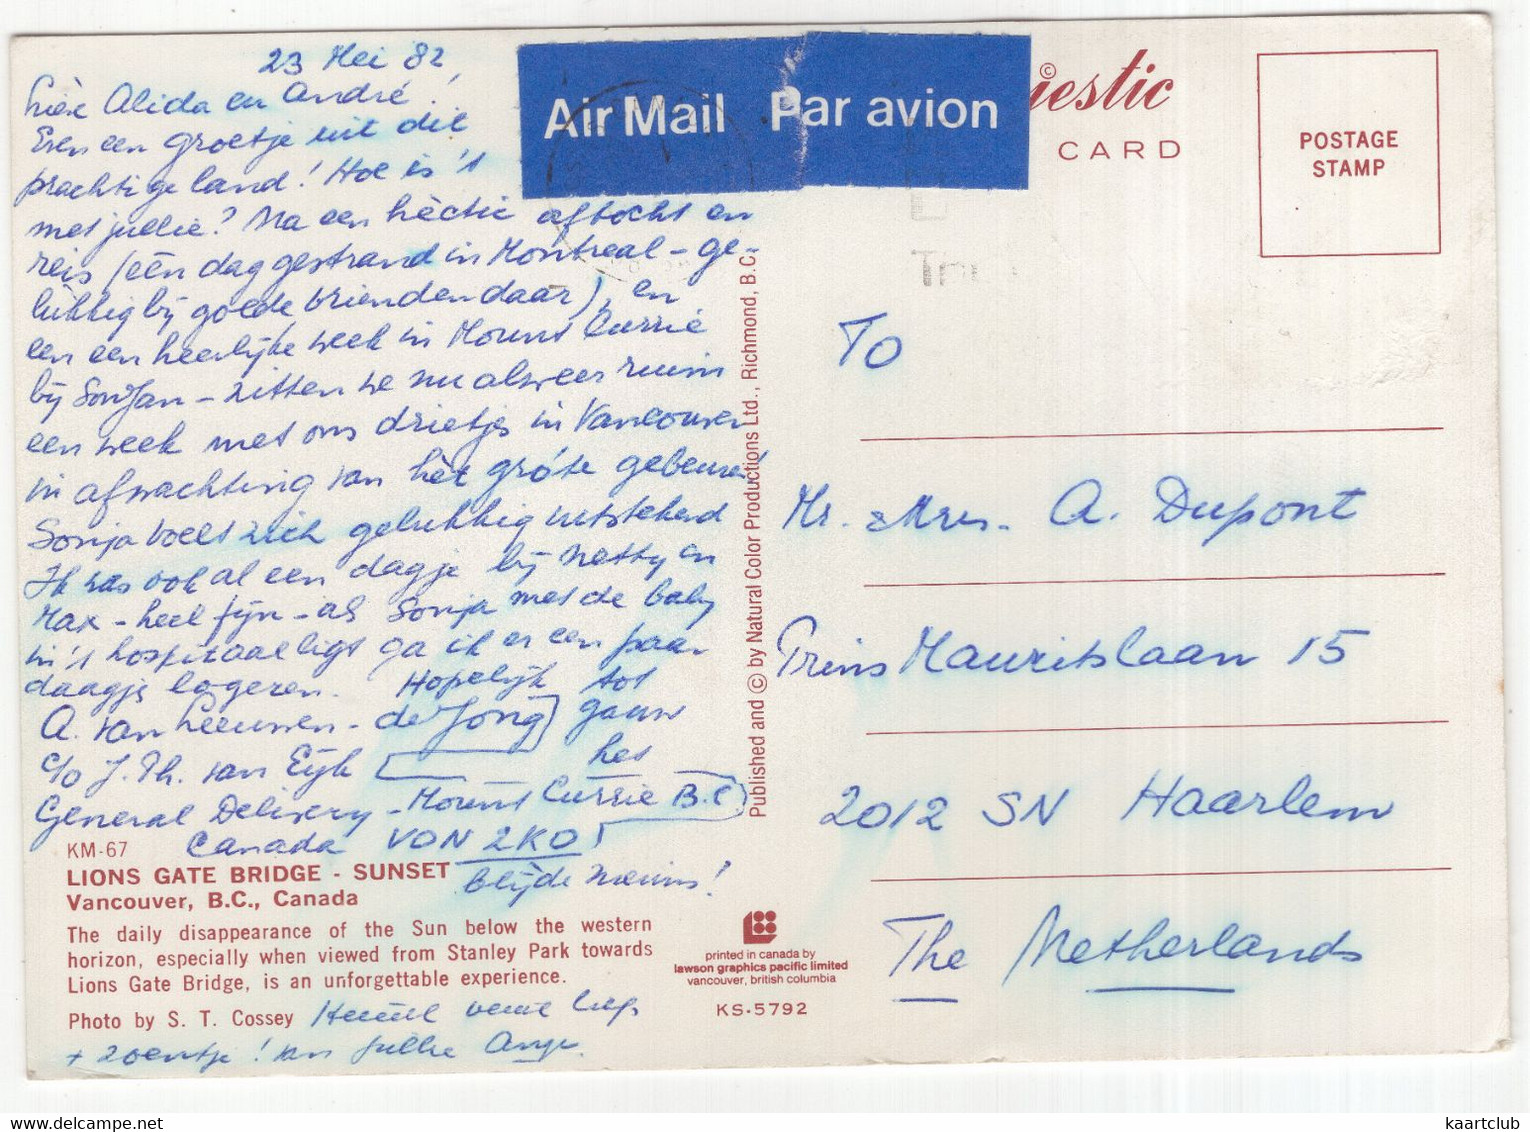 23 Mei '82,
Lieve Alida en André!
Even een groetje uit dit
prachtige land! Hoe is 't
met jullie? Na een hèctic aftocht en
reis (één dag gestrand in Montreal - ge-
lukkig bij goede vrienden daar), en
een een heerlijke week in Mount Currie
bij Son/Jan - zitten we nu alweer ruim
een week met ons drietjes in Vancouver
in afwachting van hèt gróte gebeuren!
Sonja voelt zich gelukkig uitstekend
Ik was ook al een dagje bij Netty en
Max - heel fijn - als Sonja met de baby
in 't hospitaal ligt ga ik er een paar
daagjes logeren. Hopelijk tot
A. van Leeuwen - de Jong gauw
c/o J. Th. van Eyk het
General Delivery - Mount Currie B.C.
Canada VON 2KO
blijde nieuws!
KM-67
LIONS GATE BRIDGE - SUNSET
Vancouver, B.C., Canada
The daily disappearance of the Sun below the western
horizon, especially when viewed from Stanley Park towards
Lions Gate Bridge, is an unforgettable experience.
Photo by S. T. Cossey
veel liefs
+ zoentje! van jullie
Published and © by Natural Color Productions Ltd., Richmond, B.C.
printed in canada by
lawson graphics pacific limited
vancouver, british columbia
KS-5792
Air Mail Par avion
jestic ©
CARD
POSTAGE
STAMP
To
Mr. & Mrs. A. Dupont
Prins Mauritslaan 15
2012 SN Haarlem
The Netherlands
kaartclub